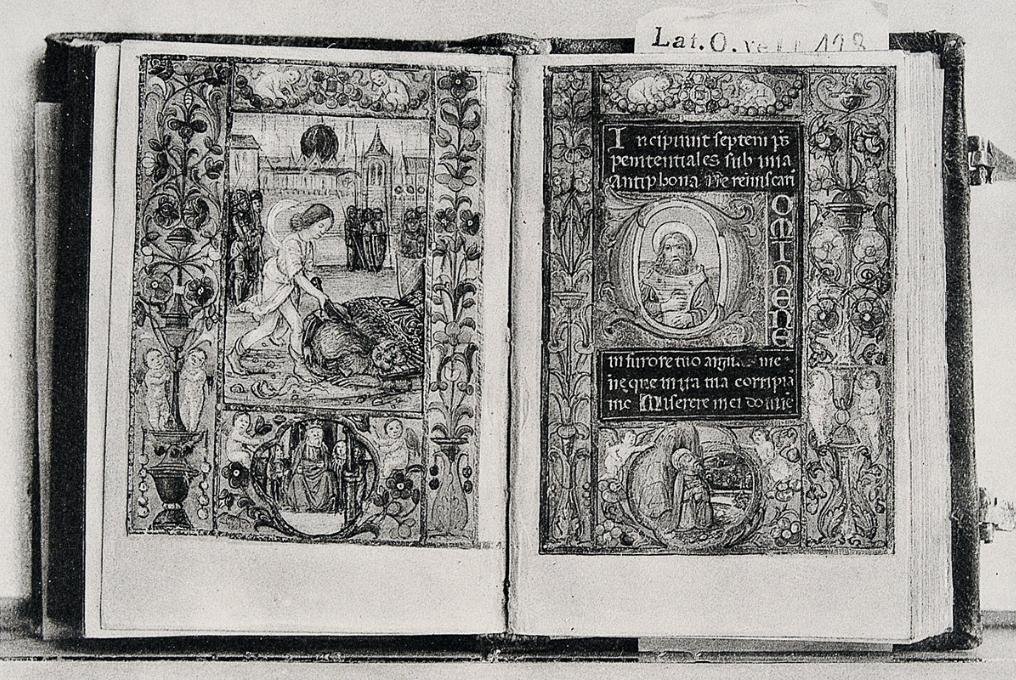 Lat. O. vel I 123
Incipiunt septem ps
penitentiales sub una
Antiphona. Ne reminiscari
OMINE NE
in furore tuo argu me
neque in ira tua corripia
me Miserere mei domine